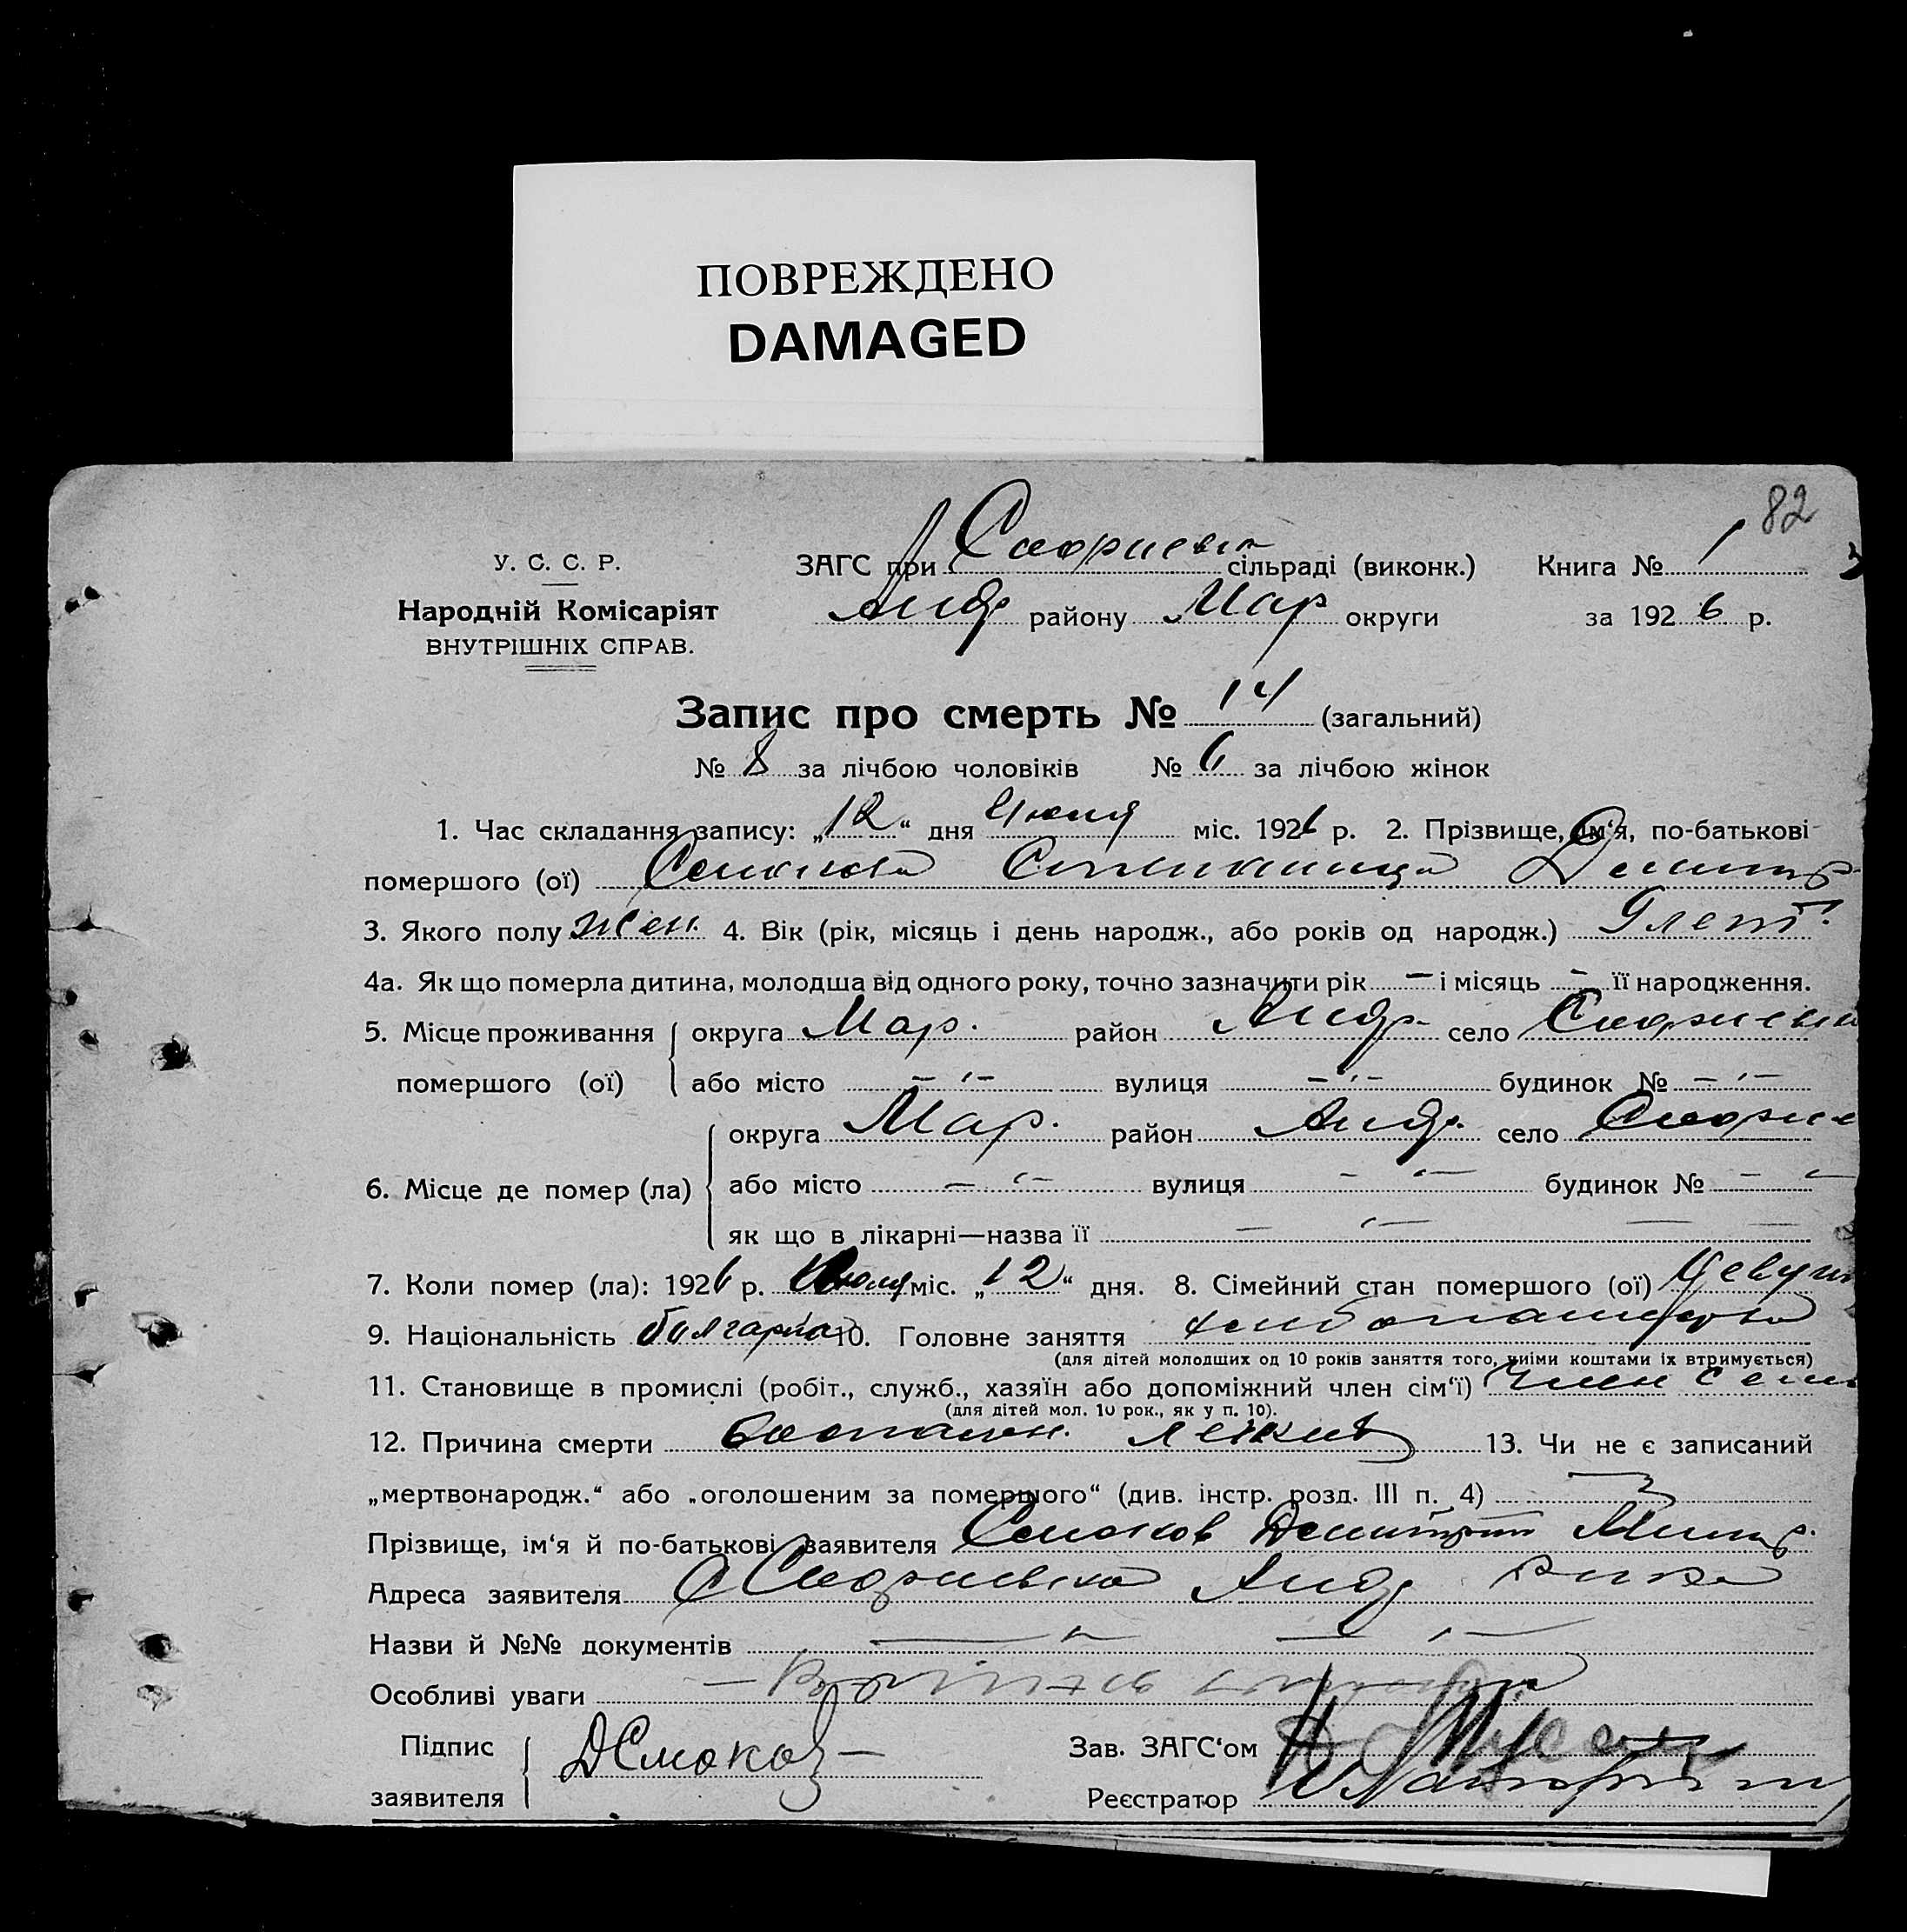 ПОВРЕЖДЕНО
DAMAGED
82
У. С. С. Р.
Народній Комісаріят
ВНУТРІШНІХ СПРАВ.
ЗАГС при сільраді (виконк.) Книга № 1
Андр району Мар округи за 1926 р.
Запис про смерть № 14 (загальний)
№ 8 за лічбою чоловіків № 6 за лічбою жінок
1. Час складання запису: „12“ дня Июня міс. 1926 р. 2. Прізвище, ім‘я, по-батькові
помершого (ої) Смокова Димитр
3. Якого полу жен. 4. Вік (рік, місяць і день народж., або років од народж.) 9 лет.
4а. Як що померла дитина, молодша від одного року, точно зазначити рік – і місяць – її народження.
5. Місце проживання округа Мар. район Андр. село
помершого (ої) або місто – „ – вулиця – „ – будинок № – „ –
округа Мар. район Андр. село
6. Місце де помер (ла) або місто – „ – вулиця – „ – будинок № – „
як що в лікарні—назва її – „ –
7. Коли помер (ла): 1926 р. міс. „12“ дня. 8. Сімейний стан помершого (ої) девуш
9. Національність болгарка 10. Головне заняття хлебопашество
(для дітей молодших од 10 років заняття того, чиїми коштами їх втримується)
11. Становище в промислі (робіт., служб., хазяїн або допоміжний член сім‘ї) член семьи
(для дітей мол. 10 рок., як у п. 10).
12. Причина смерти воспален. легких 13. Чи не є записаний
„мертвонародж.“ або „оголошеним за помершого“ (див. інстр. розд. III п. 4)
Прізвище, ім‘я й по-батькові заявителя Смоков Димитрий
Адреса заявителя с Андр района
Назви й №№ документів – „ – – „ –
Особливі уваги
Підпис ДСмоков Зав. ЗАГС‘ом
заявителя Реєстратор